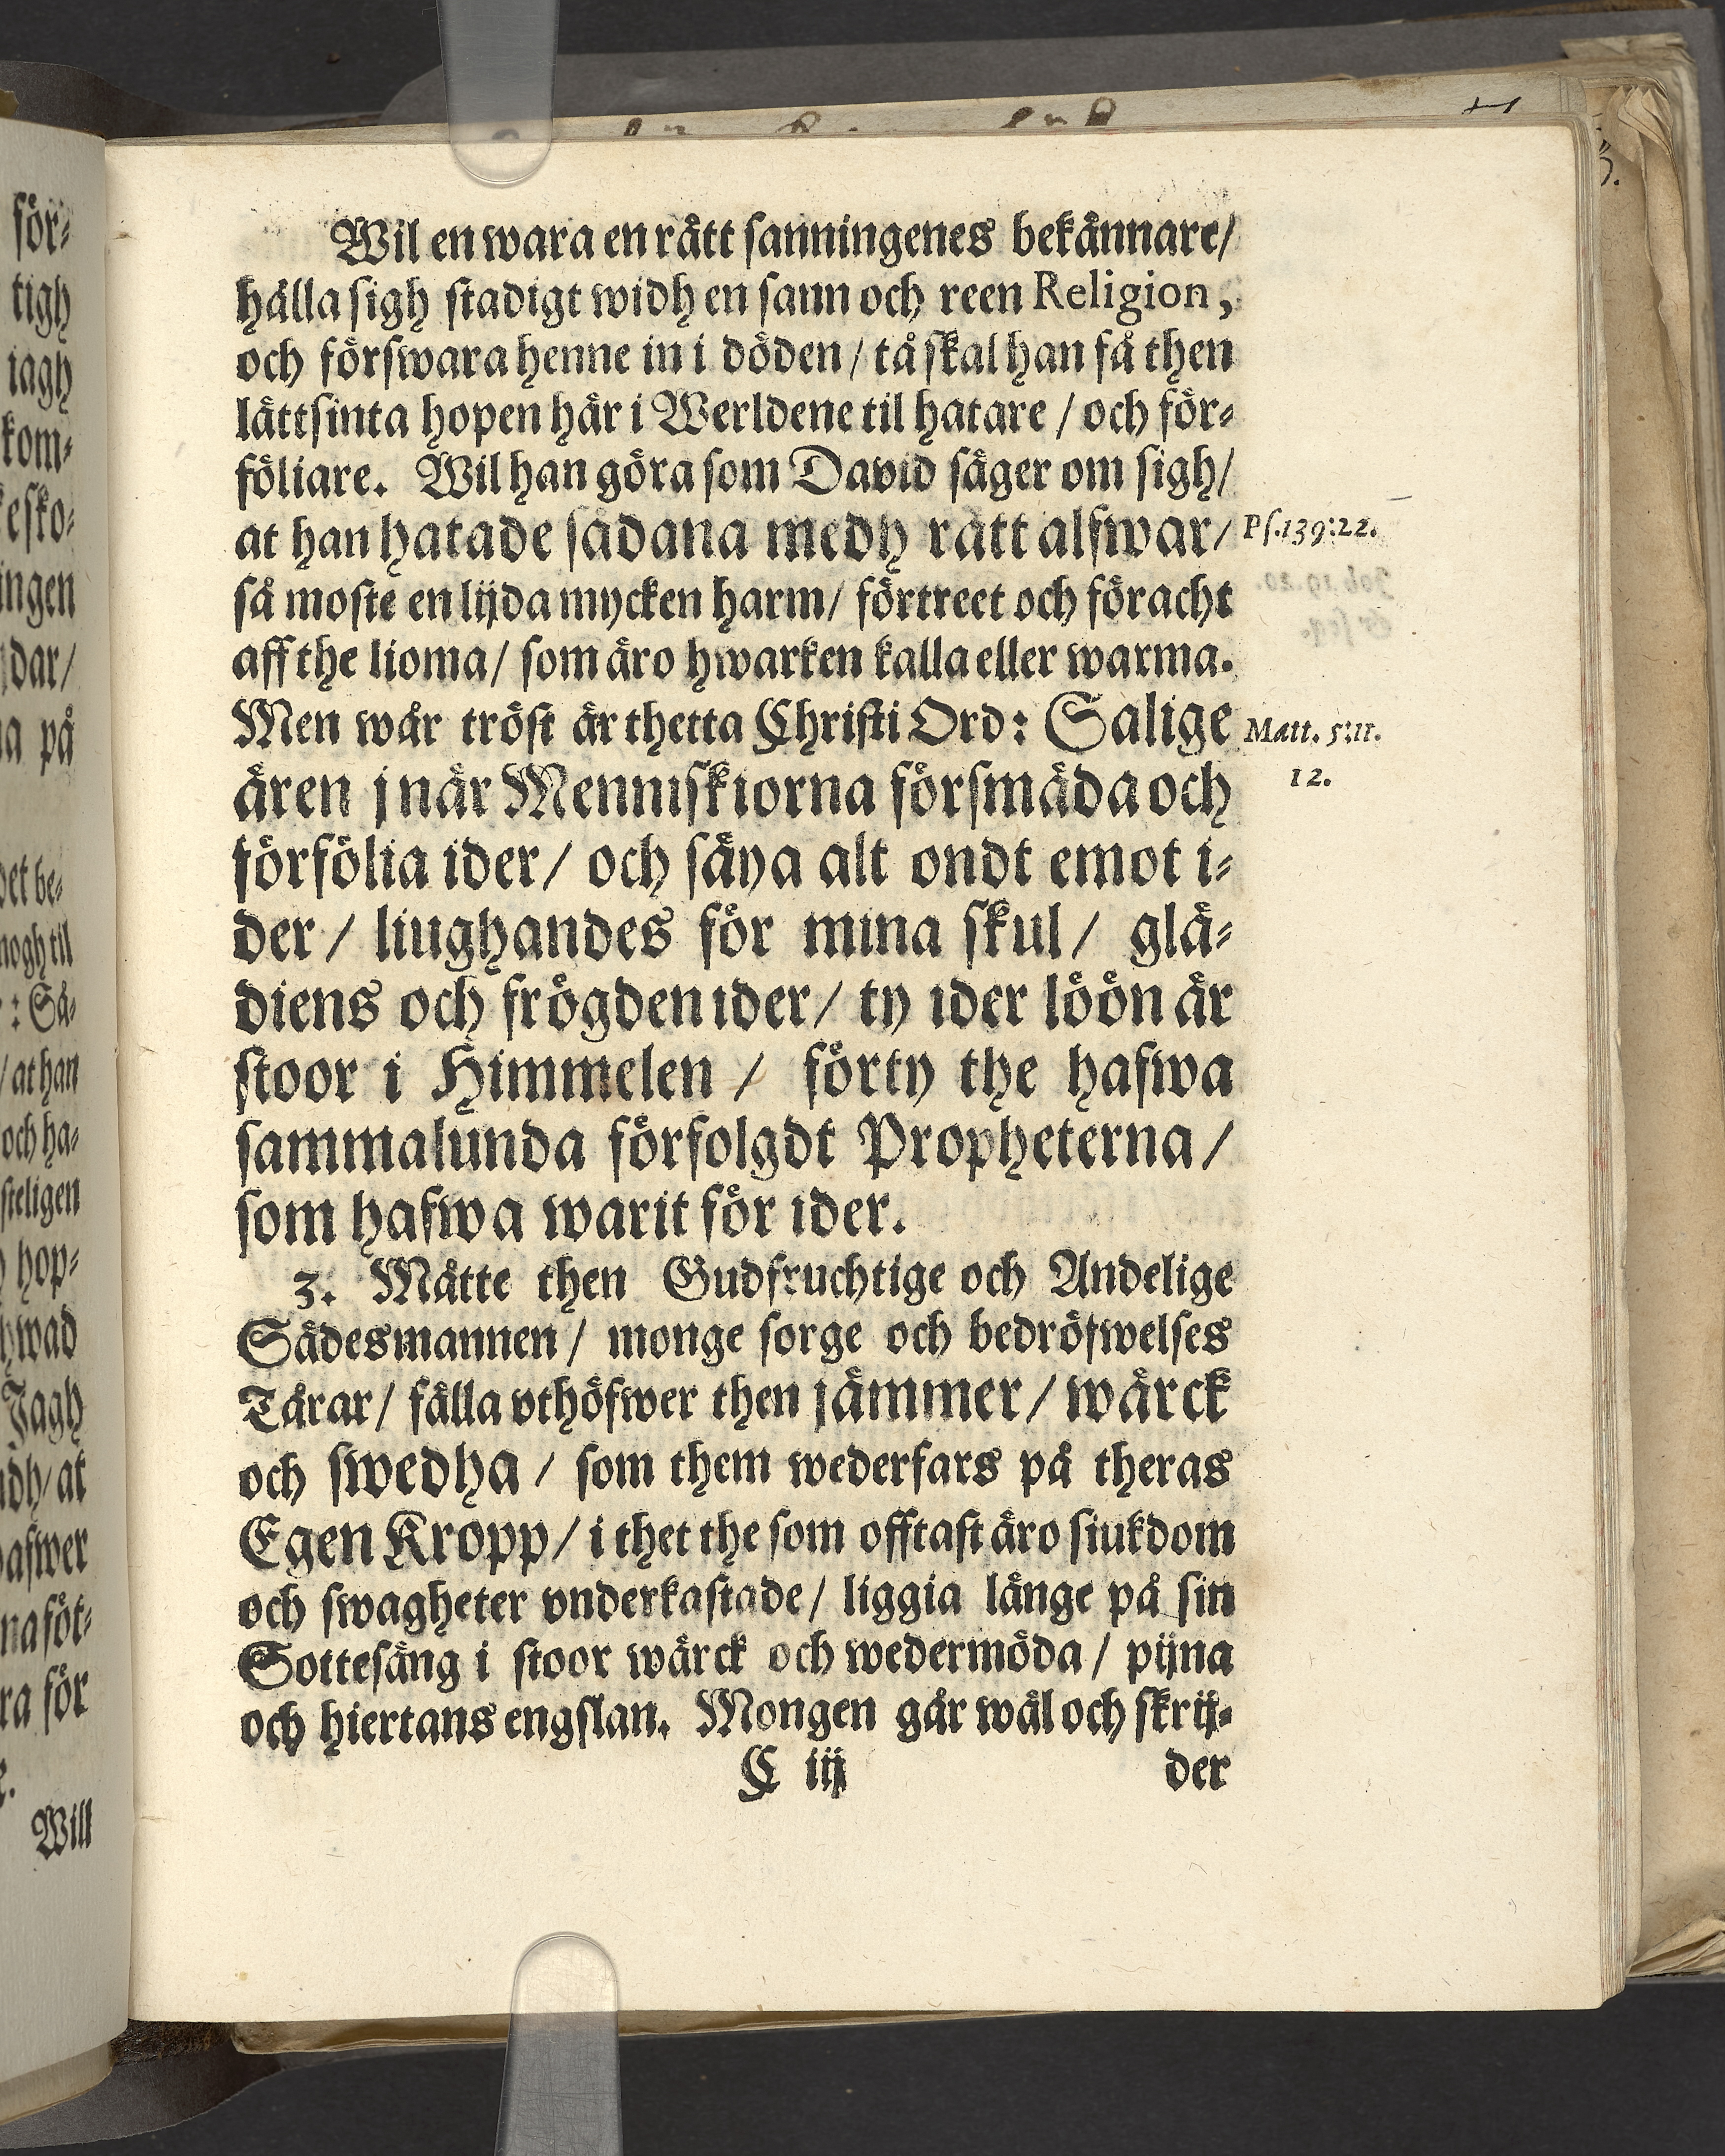 för-
tigh
iagh
kom-
esko-
ingen
dar/
na på
det be-
nogh til
: Så-
/ at han
och ha-
steligen
hop-
hwad
Jagh
/ at
hafwer
naföt-
ra för
Will
Wil en wara en rätt sanningenes bekännare/
hålla sigh stadigt widh en sann och reen Religion,
och förswara henne in i döden/ tå skal han få then
lättsinta hopen här i Werldene til hatare / och för-
föliare. Wil han göra som David säger om sigh/
at han hatade sådana medh rätt alfwar/ Ps.139:22.
så moste en lijda mycken harm/ förtreet och föracht
aff the lioma/ som äro hwarken kalla eller warma.
Men wår tröst är thetta Christi Ord: Salige Matt. 5:11.
ären j när Menniskiorna försmäda och 12.
förfölia ider/ och säya alt ondt emot i-
der/ liughandes för mina skul/ glä-
diens och frögden ider/ ty ider löön är
stoor i Himmelen / förty the hafwa
sammalunda förfolgdt Propheterna/
som hafwa warit för ider.
3. Måtte then Gudfruchtige och Andelige
Sädesmannen/ monge sorge och bedröfwelses
Tårar/ fälla vthöfwer then jämmer/ wärck
och swedha/ som them wederfars på theras
Egen Kropp/ i thet the som offtast äro siukdom
och swagheter vnderkastade/ liggia länge på sin
Sottesäng i stoor wärck och wedermöda/ pijna
och hiertans engslan. Mongen går wäl och skrij-
C iij der